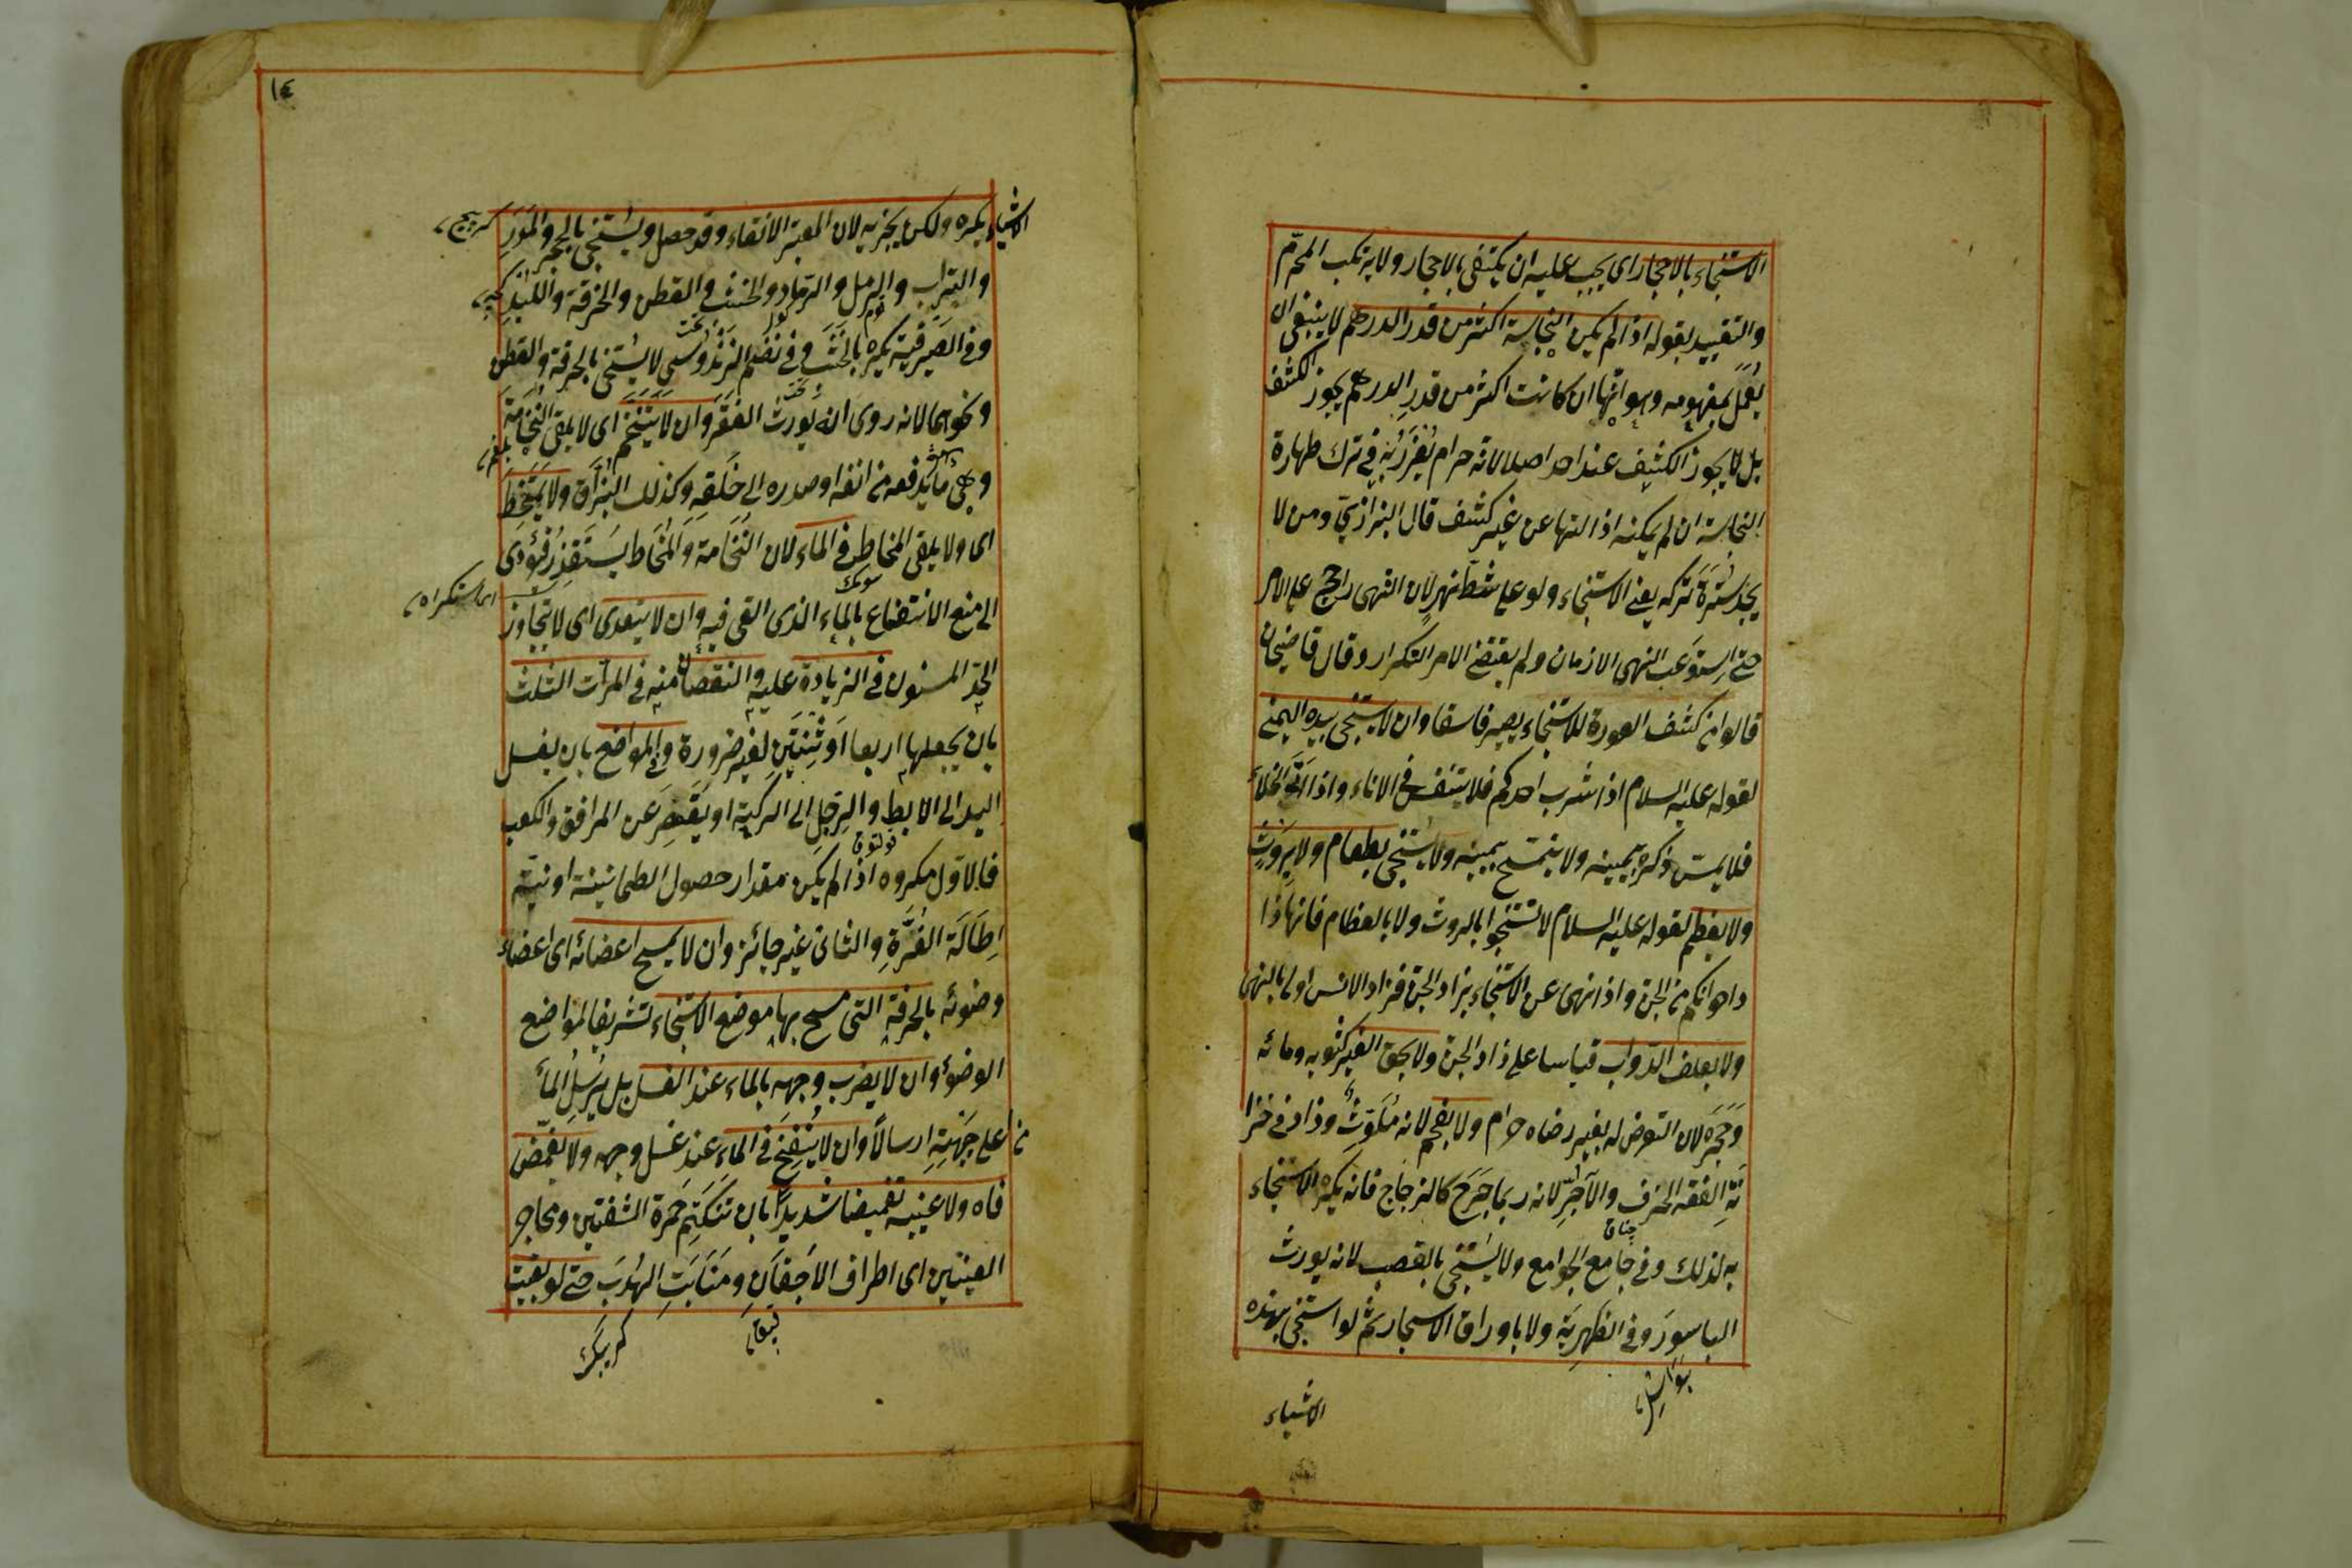 الاستنجاء بالاحجار اى يجب عليه ان يكتفى بالاحجار ولا يرتكب المحرّم
والتقييد بقوله اذا لم يكن النجاسة اكثر من قدر الدرهم لا ينبغى ان
يعمل بمفهومه وهو انها ان كانت اكثر من قدر الدرهم يجوز الكشف
بل لا يجوز الكشف عند احد اصلا لانه حرام يعذر به فى ترك طهارة
النجاسة ان لم يمكنه ازالتها عن غير كشف قال البزازىّ ومن لا
يجد سترة تركه يعنى الاستنجاء ولو على شط نهر لان النهى راجح على الامر
حتى استوعب النهى الازمان ولم يقتض الامر التكرار وقال قاضيخان
قالوا من كشف العورة للاستنجاء يصير فاسقا وان لا يستنجى بيده اليمنى
لقوله عليه السلام اذا شرب احدكم فلا يتنفس فى الاناء واذا اتى الخلاء
فلا يمسّ ذكره بيمينه ولا يتمسّح بيمينه ولا يستنجى بطعام ولا بروث
ولا بعظم لقوله عليه السلام لا تستنجوا بالروث ولا بالعظام فانها زاد
اخوانكم من الجن واذا نهى عن الاستنجاء بزاد الجن فزاد الانس اولى بالنهى
ولا بعلف الدّواب قياسا على زاد الجن ولا بحق الغير كثوبه ومائه
وحجره لان التعرض له بغير رضاه حرام ولا بفحم لانه ملوّث وزاد فى خزا
نة الفقه الخزف والآجرّ لانه ربما جرح كالزجاج فانه يكره الاستنجاء
چناق
به لذلك وفى جامع الجوامع ولا يستنجى بالقصب لانه يورث
الباسور وفى الظهيرية ولا باوراق الاشجار ثم لو استنجى بهذه
بواسير
الاشياء
١٤
الاشياء يكره ولكن يجزيه لان المعتبر الانقاء وقد حصل ويستنجى بالحجر والمدر
والتراب والرمل والرماد والخشب والقطن والخرقة واللبد
وفى الصيرفية يكره بالخشب وفى نظم الزندوسى لا يستنجى بالخرقة والقطن
ونحوهما لانه روى انه يورث الفقر وان لا يتنخم اى لا يلقى النخامة
بلغم
وهى ما يدفعه من انفه او صدره الى حلقه وكذلك البزاق ولا يتمخط
اى ولا يلقى المخاط فى الماء لان النخامة والمخاط يستقذر فيؤدى
سومك
اى استكراه
الى منع الانتفاع بالماء الذى القى فيه وان لا يتعدى اى لا يتجاوز
الحدّ المسنون فى الزيادة عليه والنقصان منه فى المرات الثلث
بان يجعلها اربعا او ثنتين لغير ضرورة وفى المواضع بان يغسل
اليد الى الابط والرجل الى الركبة او يقصر عن المرافق والكعب
قولتوق
فالاوّل مكروه اذا لم يكن مقدار حصول الطمانينة او نيّة
اطالة الغرّة والثانى غير جائز وان لا يمسح اعضائه اى اعضاء
وضوئه بالخرقة التى مسح بها موضع الاستنجاء تشريفا لمواضع
الوضوء وان لا يضرب وجهه بالماء عند الغسل بل يرسل الماء
من على جبهته ارسالا وان لا ينفخ فى الماء عند غسل وجهه ولا يغمض
فاه ولا عينيه تغميضا شديدا بان تنكتم حمرة الشفتين ومحاجر
العينين اى اطراف الاجفان ومنابت الهدب حتى لو بقيت
قپاق
كرپك